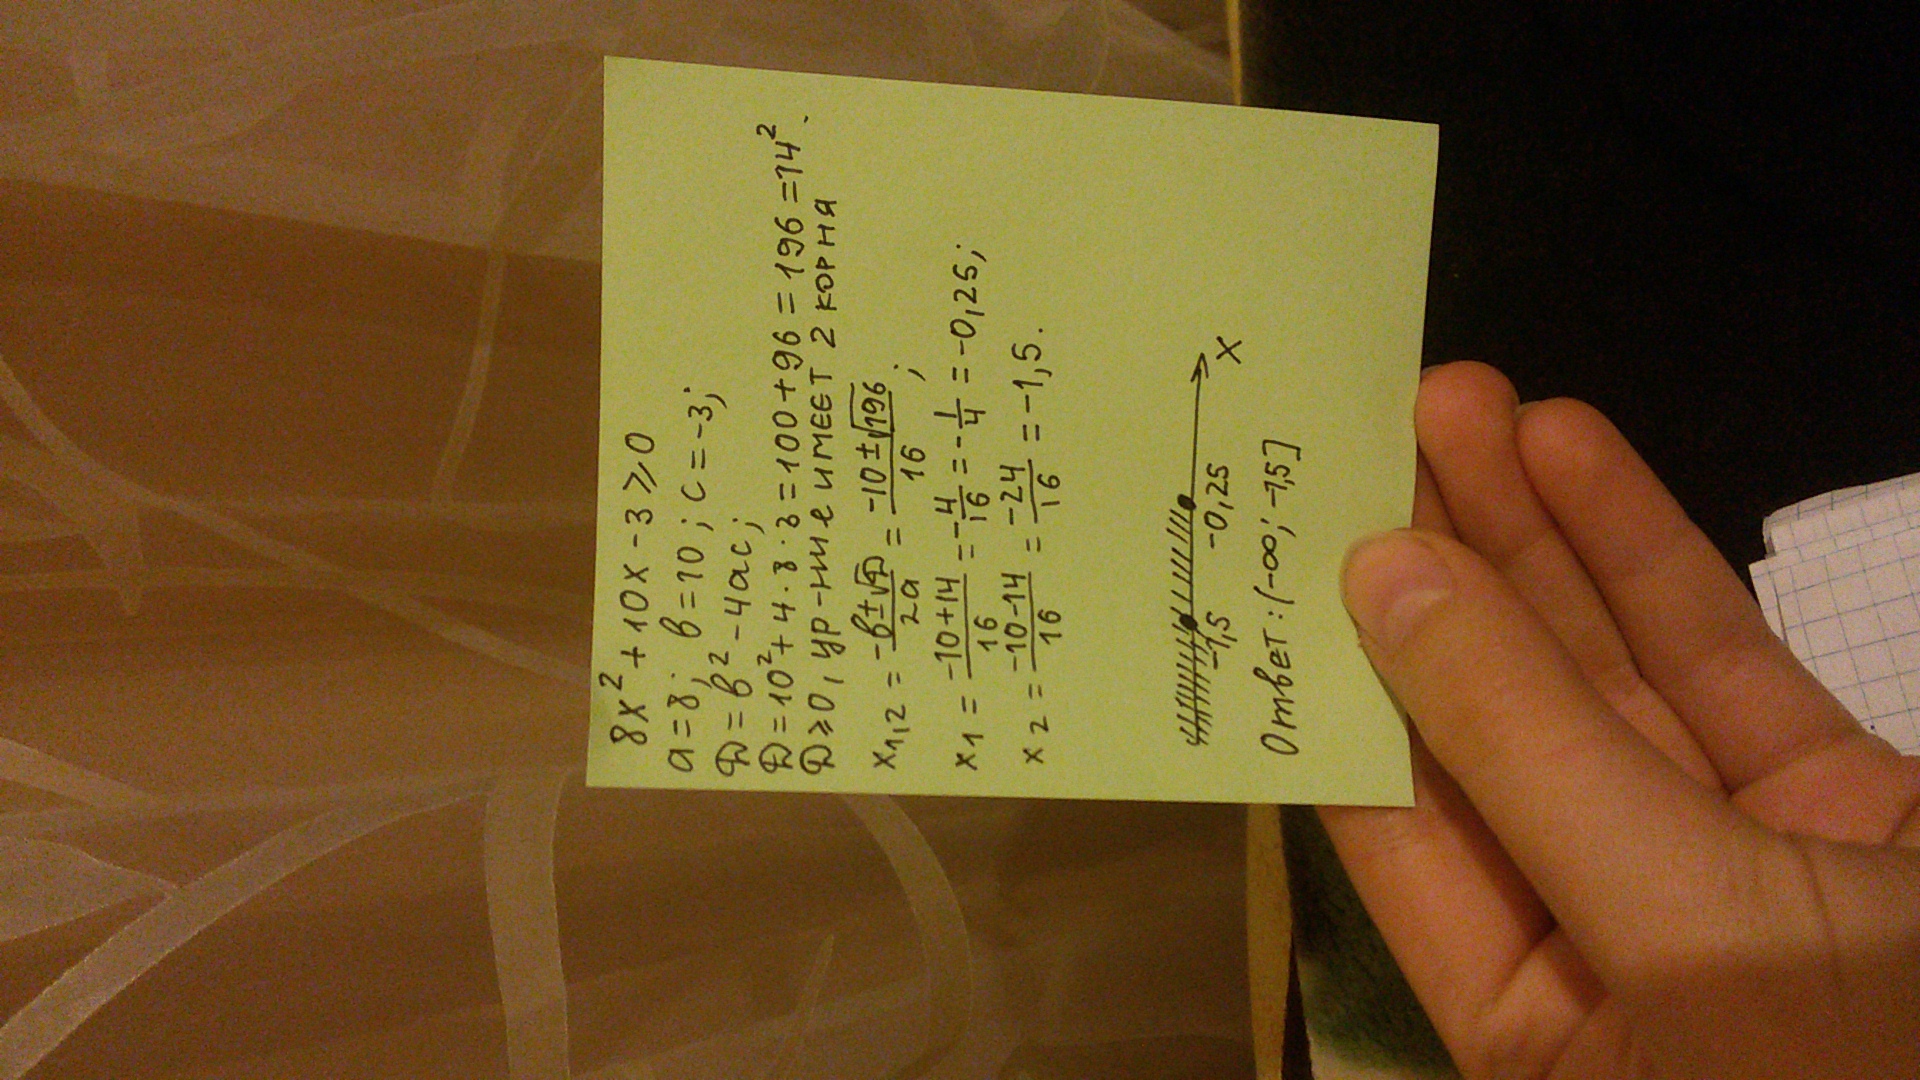 8x² + 10x - 3 ⩾ 0
a = 8; в = 10; c = -3;
D = в² - 4ac;
D = 10² + 4 · 8 · 3 = 100 + 96 = 196 = 14²
D ⩾ 0, ур-ние имеет 2 корня.
x₁,₂ = (-в ± √D)/2a = (-10 ± √196)/16;
x₁ = (-10 + 14)/16 = -4/16 = -1/4 = -0,25;
x₂ = (-10 - 14)/16 = -24/16 = -1,5.
-1,5 -0,25 x
Ответ: (-∞; -1,5]